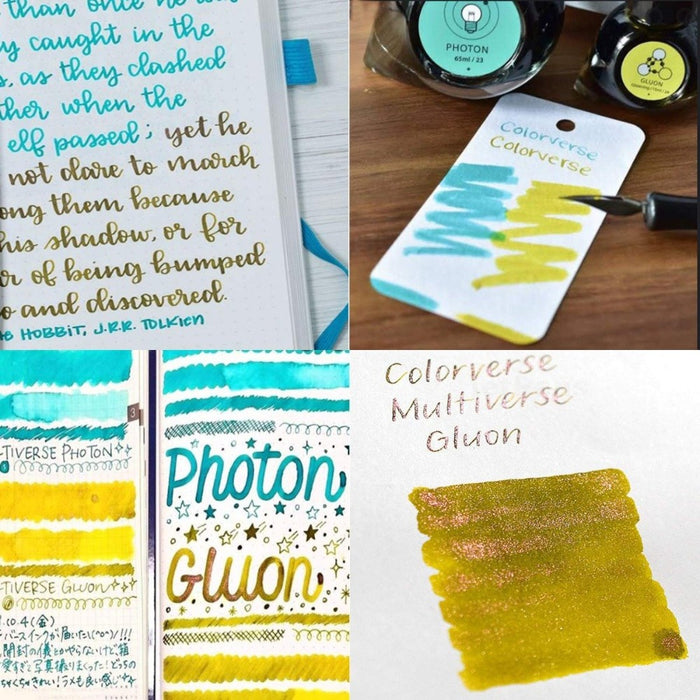 than once he was
y caught in the
s, as they clashed
ther when the
elf passed; yet he
not dare to march
ong them because
his shadow, or for
r of being bumped
o and discovered.
HE HOBBIT, J.R.R. TOLKIEN
PHOTON
65ml / 23
GLUON
Colorverse
Colorverse
3
TIVERSE PHOTON
TIVERSE GLUON
.10.4(金)
Photon
Gluon
Colorverse
Multiverse
Gluon